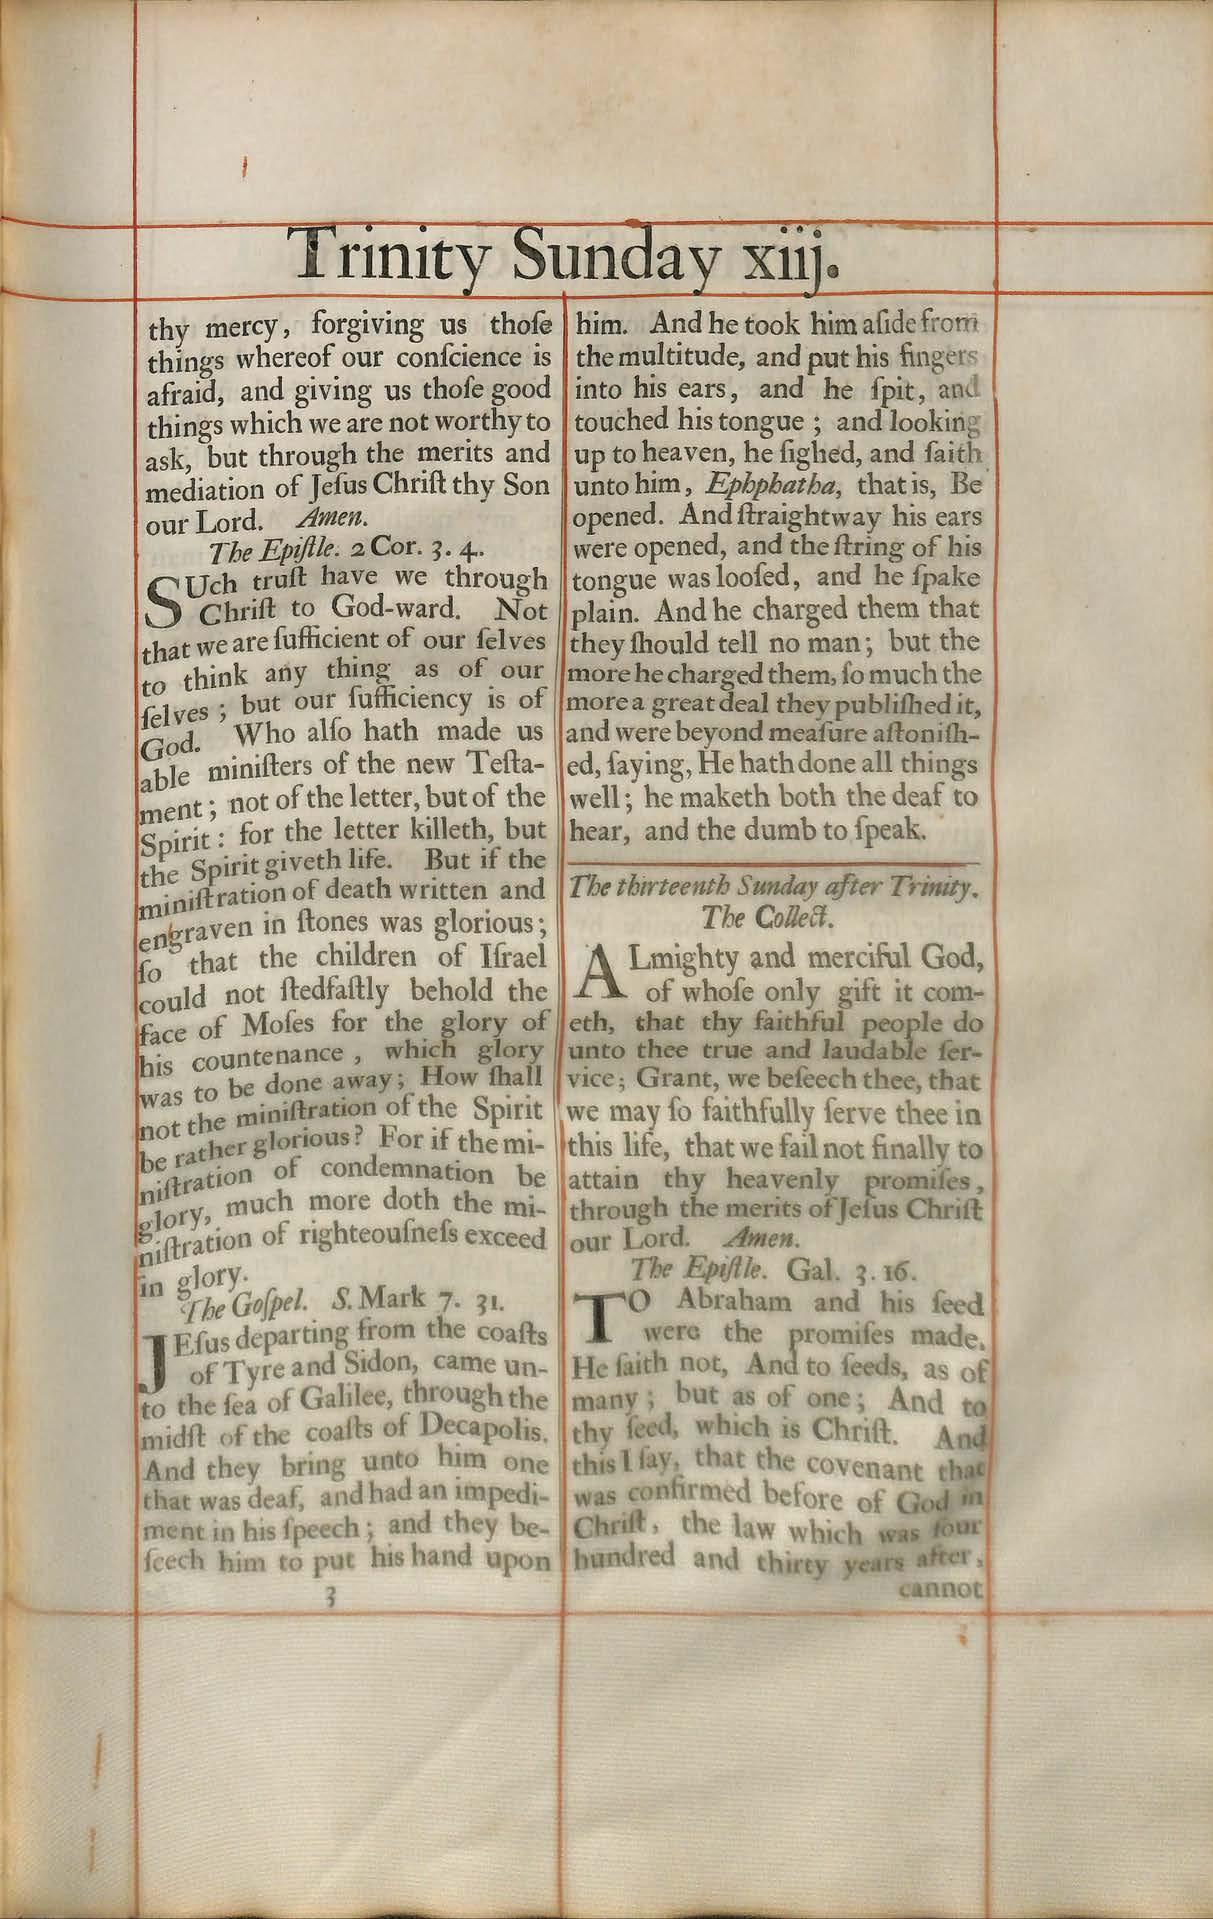 Trinity Sunday xiij.
thy mercy, forgiving us thoſe
things whereof our conſcience is
afraid, and giving us thoſe good
things which we are not worthy to
ask, but through the merits and
mediation of Jeſus Chriſt thy Son
our Lord. Amen.
The Epiſtle. 2 Cor. 3. 4.
SUch truſt have we through
Chriſt to God-ward. Not
that we are ſufficient of our ſelves
to think any thing as of our
ſelves; but our ſufficiency is of
God. Who alſo hath made us
able miniſters of the new Teſta-
ment; not of the letter, but of the
Spirit: for the letter killeth, but
the Spirit giveth life. But if the
miniſtration of death written and
engraven in ſtones was glorious;
ſo that the children of Iſrael
could not ſtedfaſtly behold the
face of Moſes for the glory of
his countenance, which glory
was to be done away; How ſhall
not the miniſtration of the Spirit
be rather glorious? For if the mi-
niſtration of condemnation be
glory, much more doth the mi-
niſtration of righteouſneſs exceed
in glory.
The Goſpel. S. Mark 7. 31.
JEſus departing from the coaſts
of Tyre and Sidon, came un-
to the ſea of Galilee, through the
midſt of the coaſts of Decapolis.
And they bring unto him one
that was deaf, and had an impedi-
ment in his ſpeech; and they be-
ſeech him to put his hand upon
3
him. And he took him aſide from
the multitude, and put his fingers
into his ears, and he ſpit, and
touched his tongue; and looking
up to heaven, he ſighed, and ſaith
unto him, Ephphatha, that is, Be
opened. And ſtraightway his ears
were opened, and the ſtring of his
tongue was looſed, and he ſpake
plain. And he charged them that
they ſhould tell no man; but the
more he charged them, ſo much the
more a great deal they publiſhed it,
and were beyond meaſure aſtoniſh-
ed, ſaying, He hath done all things
well; he maketh both the deaf to
hear, and the dumb to ſpeak.
The thirteenth Sunday after Trinity.
The Collect.
ALmighty and merciful God,
of whoſe only gift it com-
eth, that thy faithful people do
unto thee true and laudable ſer-
vice; Grant, we beſeech thee, that
we may ſo faithfully ſerve thee in
this life, that we fail not finally to
attain thy heavenly promiſes,
through the merits of Jeſus Chriſt
our Lord. Amen.
The Epiſtle. Gal. 3. 16.
TO Abraham and his ſeed
were the promiſes made.
He ſaith not, And to ſeeds, as of
many; but as of one; And to
thy ſeed, which is Chriſt. And
this I ſay, that the covenant that
was confirmed before of God in
Chriſt, the law which was four
hundred and thirty years after,
cannot